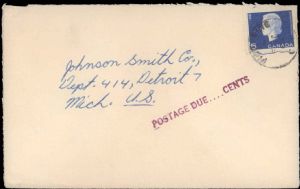 5 CANADA
Johnson Smith Co.,
Dept. 414, Detroit 7
Mich. U.S.
POSTAGE DUE....CENTS